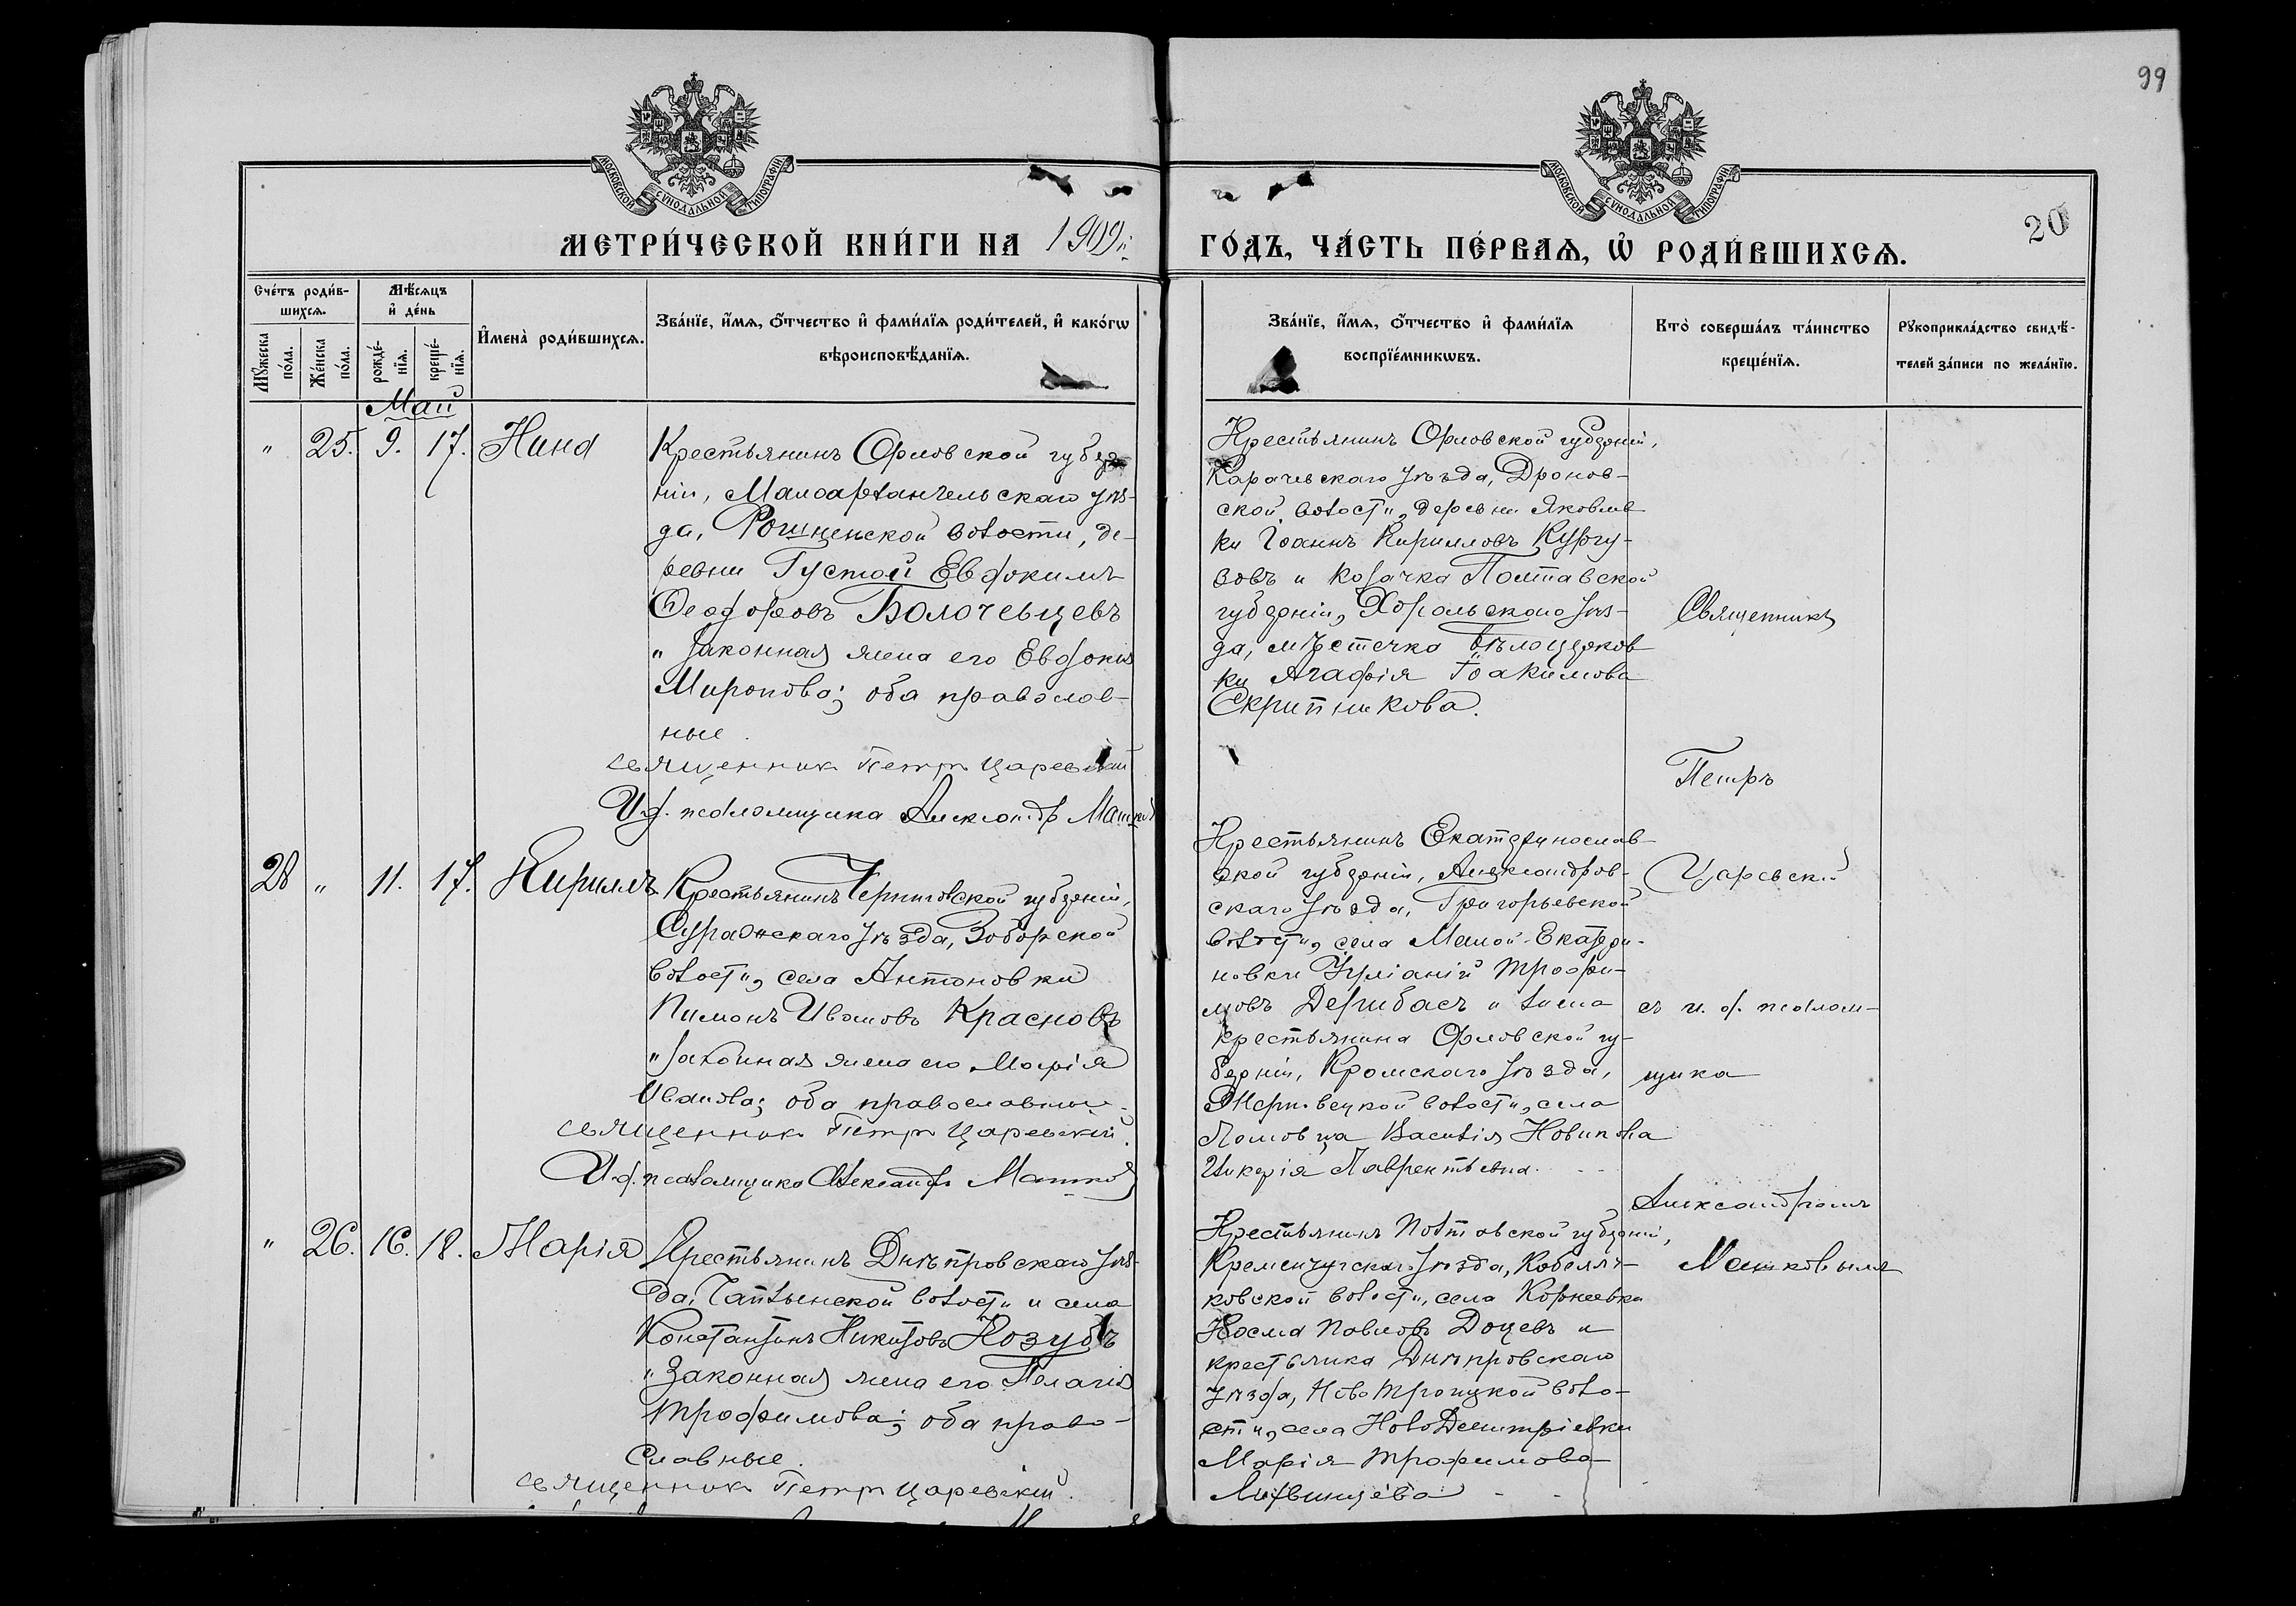 99
МОСКОВСКОЙ СѴНОДАЛЬНОЙ ТИПОГРАФІИ
МОСКОВСКОЙ СѴНОДАЛЬНОЙ ТИПОГРАФІИ
20
МЕТРИ́ЧЕСКОЙ КНИ́ГИ НА 1909й
ГО́ДЪ, ЧА́СТЬ ПЕ́РВАѦ, Ѡ҆ РОДИ́ВШИХСѦ.
Счє́тъ роди́в-
шихсѧ.
Мꙋ́жеска по́ла.
Же́нска по́ла.
Мѣ́сяцъ
и҆ де́нь
рожде́-
нїѧ.
креще́-
нїѧ.
И҆мена̀ роди́вшихсѧ.
Зва́нїе, и҆́мѧ, ѻ҆́тчество и҆ фами́лїѧ роди́телей, и҆ како́гѡ
вѣроисповѣ́данїѧ.
Зва́нїе, и҆́мѧ, ѻ҆́тчество и҆ фами́лїѧ
воспрїе́мникѡвъ.
Кто̀ соверша́лъ та́инство
креще́нїѧ.
Рꙋкоприкла́дство свидѣ́-
телей за́писи по жела́нїю.
Май
" 25. 9. 17. Нина
Крестьянинъ Орловской губер
ніи, Малоархангельскаго уѣз-
да, Рогщенской волости, де-
ревни Густой Евфокимъ
Ѳеодоровъ Болотевцевъ
и законная жена его Евдокія
Миронова; оба православ-
ные.
священник Петр Царевский
И.д. псаломщика Александр Машков
Крестьянинъ Орловской губерніи,
Карачевскаго уѣзда, Дронов-
ской волости, деревни Яковлев
ки Іоаннъ Кирилловъ Кургу-
зовъ и козачка Полтавской
губерніи, Хорольскаго уѣз-
да, мѣстечка Бѣлоцерков
ки Агафія Іоакимова
Скрипникова.
28 " 11. 17. Кириллъ
Крестьянинъ Черниговской губерніи,
Суражскаго уѣзда,
волости, села Антоновки
Пименъ Ивановъ Красновъ
и законная жена его Марія
Иванова; оба православные.
священник Петр Царевскій.
И.д. псаломщика Александр Машков
Крестьянинъ Екатеринослав-
ской губерніи, Александров-
скаго уѣзда, Григорьевской
волости, села Малой-Екатери-
новки Іуліаній Трофи-
мовъ Дерибасъ и жена
крестьянина Орловской гу-
берніи, Кромскаго уѣзда,
волости, села
Ломовца Василія Новикова
Гликерія Лаврентьевна.
" 26. 16. 18. Марія
Крестьянинъ Днѣпровскаго уѣз-
да, Чаплынской волости и села
Константинъ Никитовъ Козубъ
и законная жена его Пелагія
Трофимова; оба право-
славные.
священник Петр Царевскій.
Крестьянинъ Полтавской губерніи,
Кременчугскаго уѣзда, Кобеляч-
ковской волости, села Корнеевки
Косма Павловъ Доцевъ и
крестьянка Днѣпровскаго
уѣзда, НовоТроицкой воло-
сти, села НовоДмитріевки
Марія Трофимова
Литвинцева
Священникъ
Петръ
Царевскій
съ и. д. псалом-
щика
Александромъ
Машковымъ